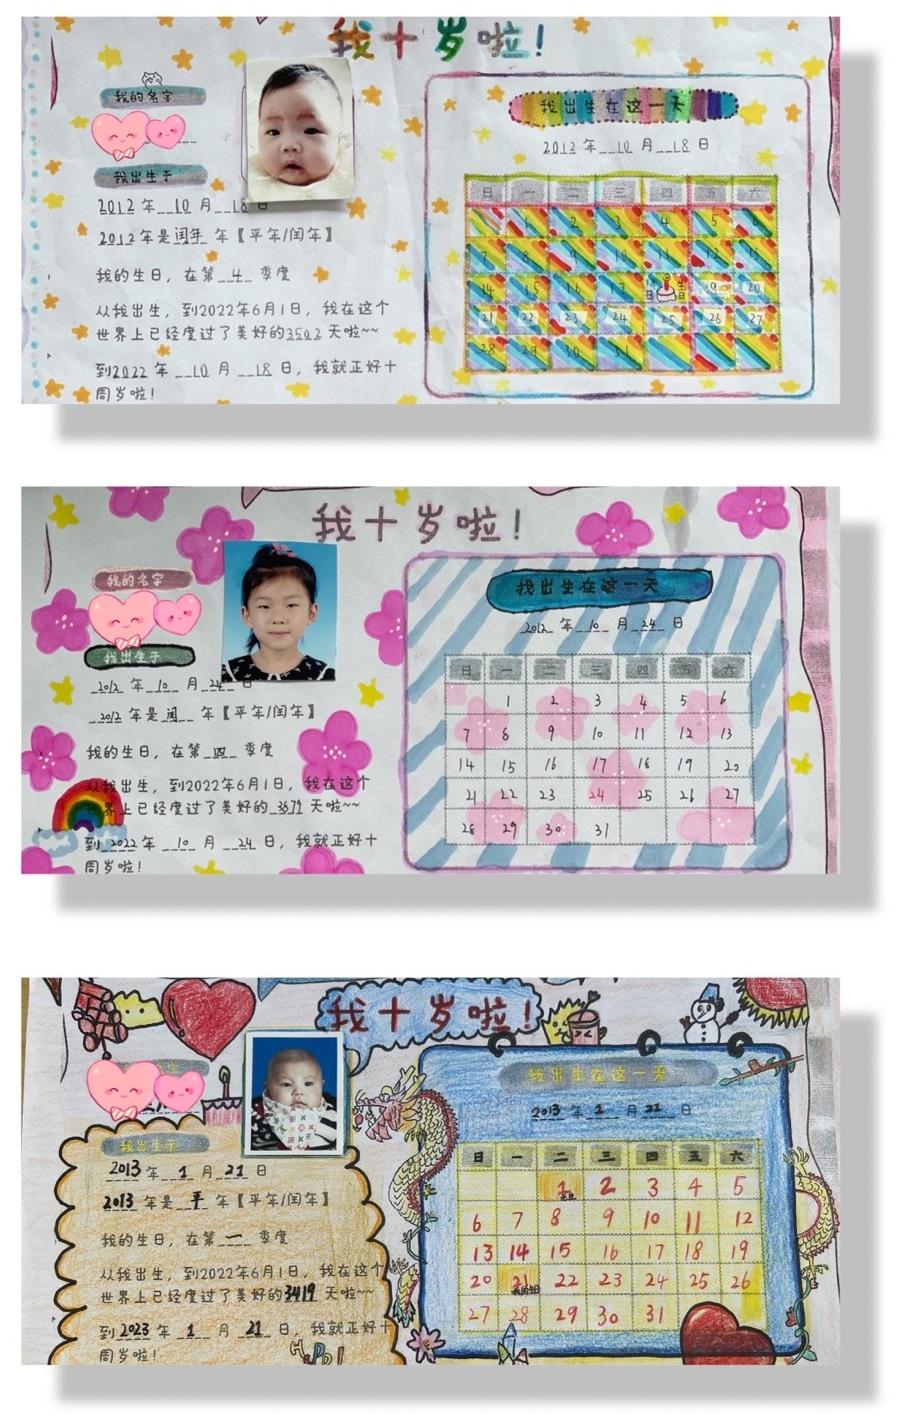 我十岁啦!
我的名字
我出生于
2012年 10 月 18 日
2012年是闰年 年【平年/闰年】
我的生日，在第 4 季度
从我出生，到2022年6月1日，我在这个
世界上已经度过了美好的3502天啦~~
到2022 年 10 月 18 日，我就正好十
周岁啦!
我出生在这一天
2012 年 10 月 18 日
日 一 二 三 四 五 六
1 2 3 4 5
7 8 9 10 11 12 13
14 15 16 17 18日 生日 19 20
21 22 23 24 25 26 27
28 29 30 31
我十岁啦!
我的名字
我出生于
2012 年 10 月 24 日
2012 年是 闰 年【平年/闰年】
我的生日，在第 四 季度
从我出生，到2022年6月1日，我在这个
世界上已经度过了美好的 天啦~~
到 2022 年 10 月 24 日，我就正好十
周岁啦!
我出生在这一天
2012 年 10 月 24 日
日 一 二 三 四 五 六
1 2 3 4 5 6
7 8 9 10 11 12 13
14 15 16 17 18 19 20
21 22 23 24 25 26 27
28 29 30 31
我十岁啦!
字
我出生于
2013 年 1 月 21 日
2013 年是 平 年【平年/闰年】
我的生日，在第 一 季度
从我出生，到2022年6月1日，我在这个
世界上已经度过了美好的3419 天啦~~
到2023 年 1 月 21 日，我就正好十
周岁啦!
我出生在这一天
2013 年 1 月 21 日
日 一 二 三 四 五 六
1 2 3 4 5
6 7 8 9 10 11 12
13 14 15 16 17 18 19
20 21 22 23 24 25 26
27 28 29 30 31